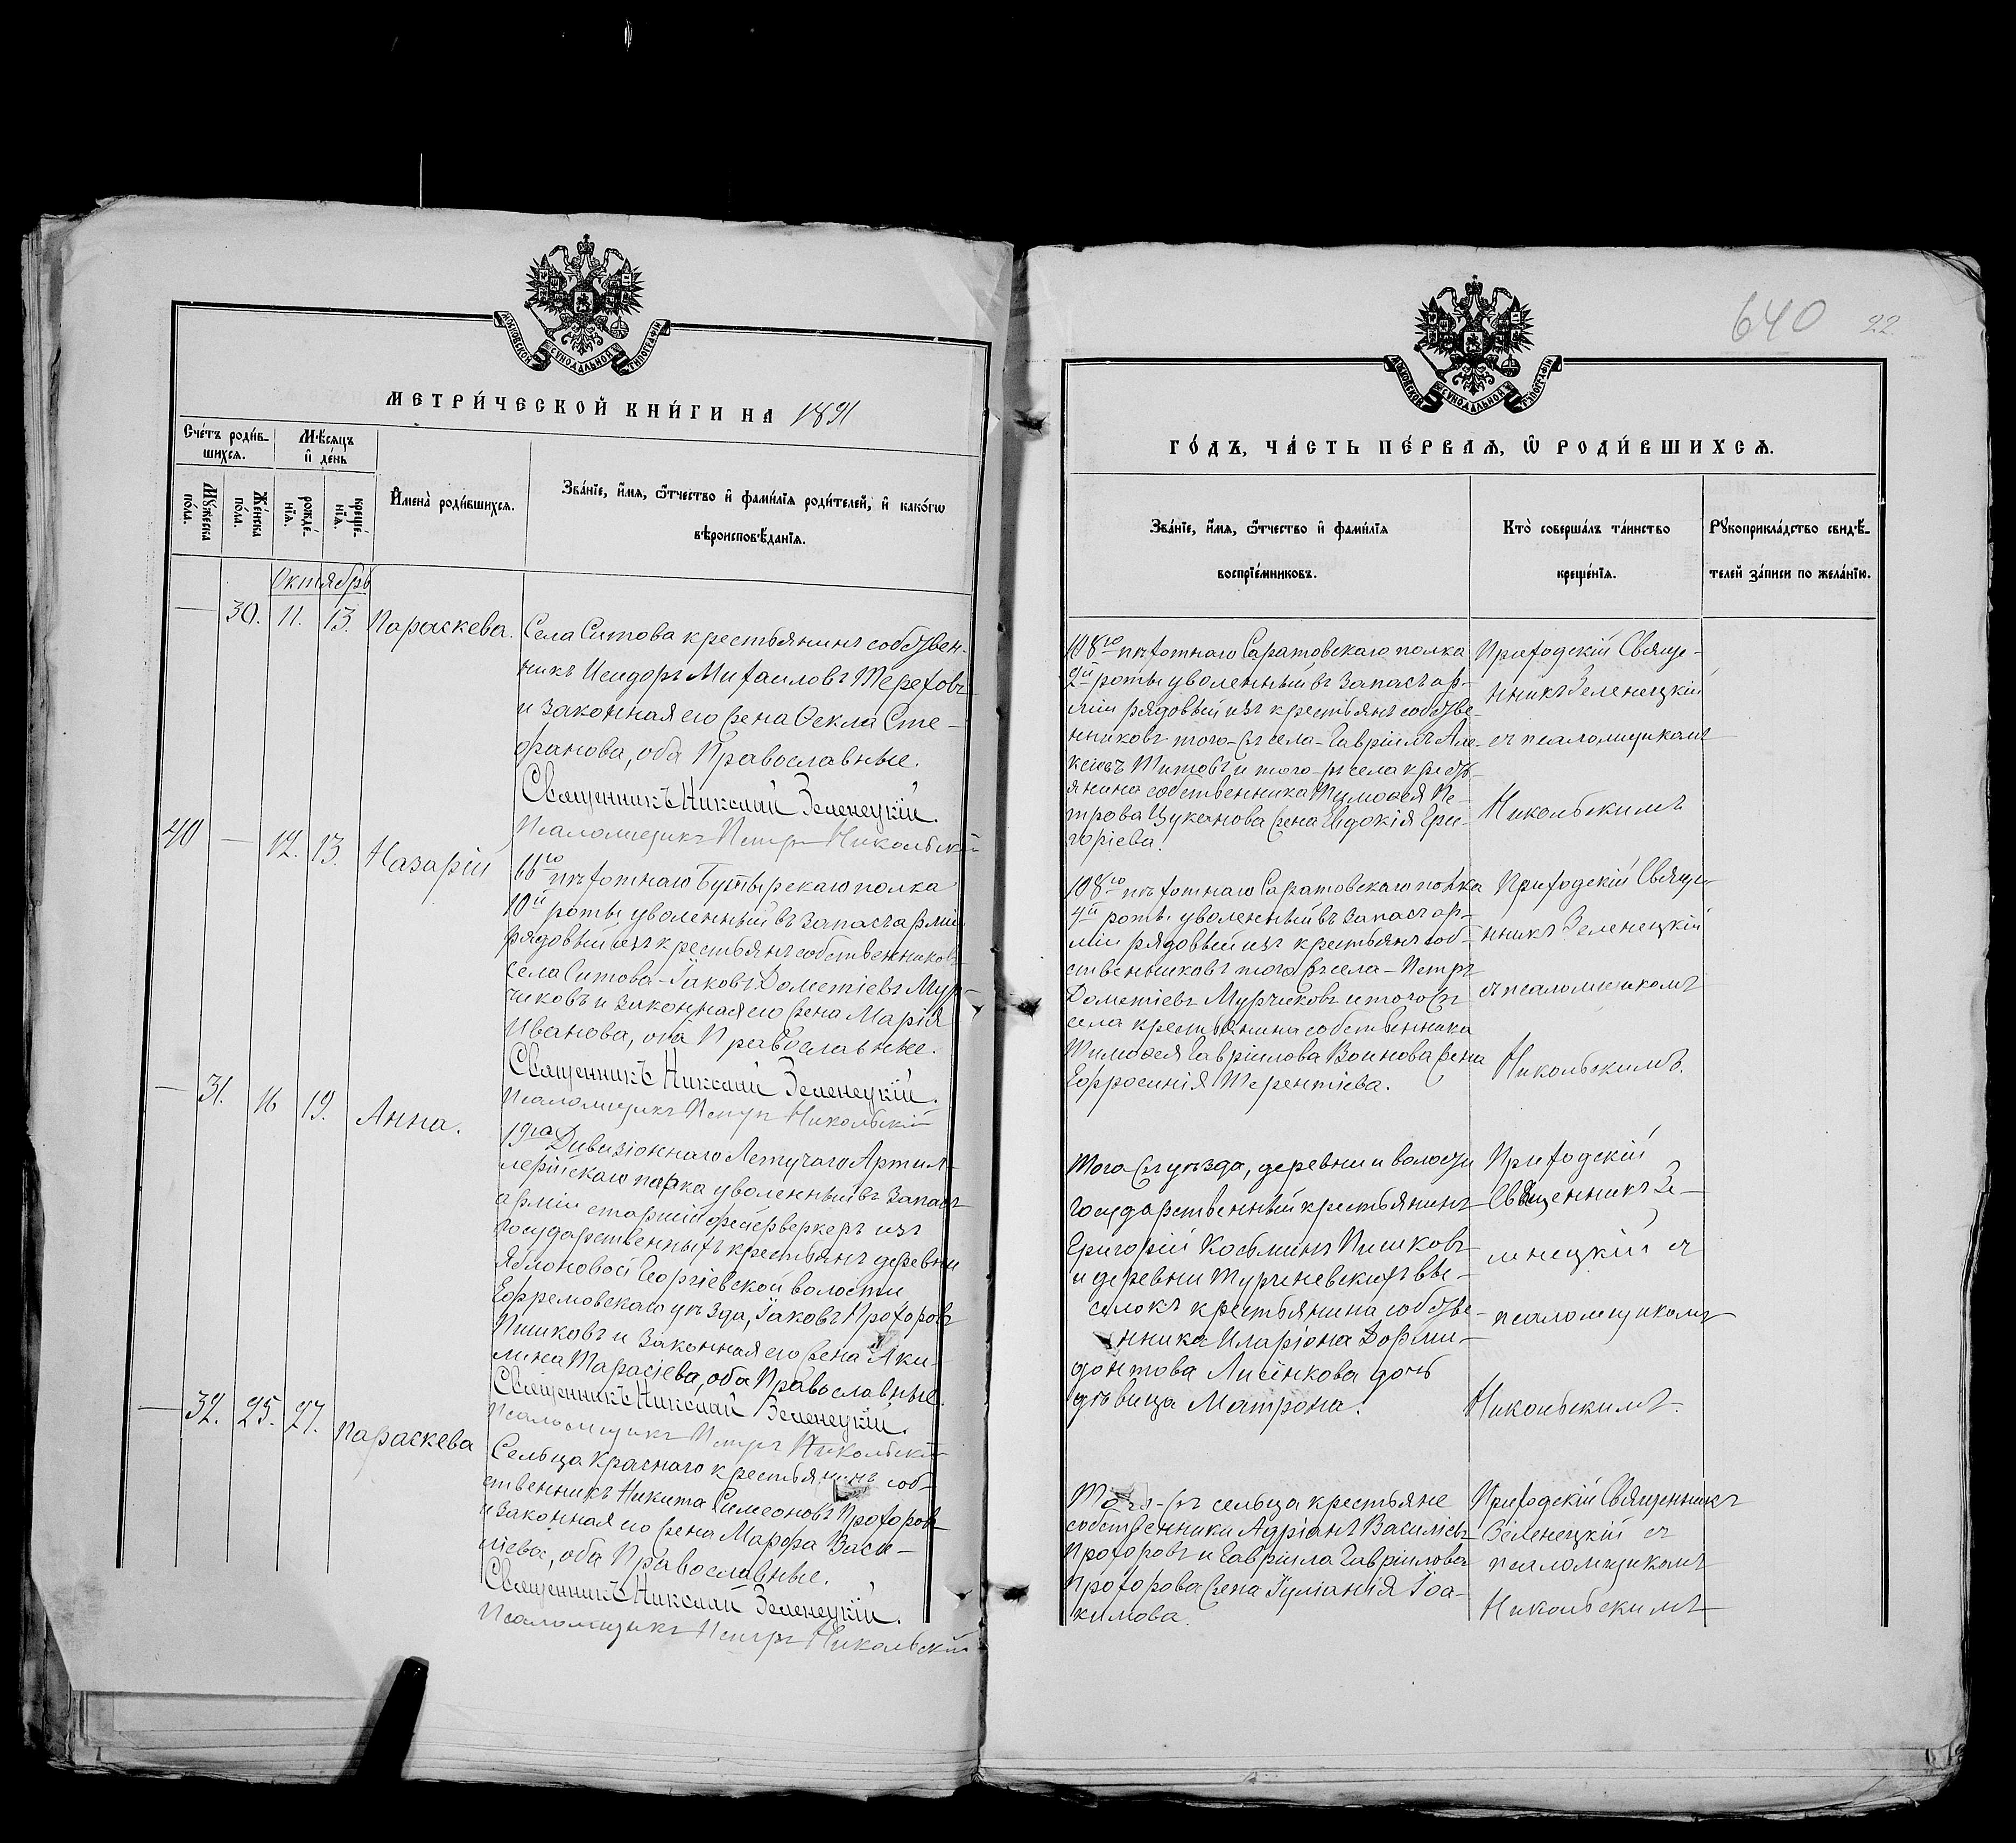 МОСКОВСКОЙ СѴНОДАЛЬНОЙ ТИПОГРАФІИ
МЕТРИ́ЧЕСКОЙ КНИ́ГИ НА 1891
Сче́тъ роди́в-
шихсѧ.
Мѣ́сѧцъ
и҆ де́нь
Мꙋ́жеска
по́ла.
Же́нска
по́ла.
рожде́-
нїѧ.
креще́-
нїѧ.
И҆мена̀ роди́вшихсѧ.
Зва́нїе, и҆́мѧ, ѻ҆́тчество и҆ фами́лїѧ роди́телей, и҆ како́гѡ
вѣроисповѣ́данїѧ.
Октябрь
— 30. 11. 13. Параскева.
Села Ситова крестьянинъ собствен-
никъ Исидоръ Михаиловъ Тереховъ
и законная его жена Ѳекла Сте-
фанова, оба Православные.
Священникъ Николай Зеленецкій.
Псаломщикъ Петръ Никольскій
40 — 12. 13. Назарій
66го пѣхотнаго Бутырскаго полка
10й роты уволенный въ запасъ арміи
рядовый изъ крестьянъ собственниковъ
села Ситова – Іаковъ Дометіевъ Мур-
чиковъ и законная его жена Марія
Иванова, оба Православные.
Священникъ Николай Зеленецкій.
Псаломщикъ Петръ Никольскій
— 31. 16 19. Анна.
19го Дивизіоннаго Летучаго Артил-
лерійскаго парка уволенный въ запасъ
арміи старшій фейерверкеръ изъ
государственныхъ крестьянъ деревни
Яблоновой Георгіевской волости
Ефремовскаго уѣзда, Іаковъ Прохоровъ
Пишковъ и законная его жена Аки-
лина Тарасіева, оба Православные.
Священникъ Николай Зеленецкій.
Псаломщикъ Петръ Никольскій
— 32. 25. 27. Параскева
Сельца Краснаго крестьянинъ соб-
ственникъ Никита Симеоновъ Прохоровъ
и законная его жена Марфа Васи-
ліева, оба Православные.
Священникъ Николай Зеленецкій.
Псаломщикъ Петръ Никольскій
640 22
МОСКОВСКОЙ СѴНОДАЛЬНОЙ ТИПОГРАФІИ
ГО́ДЪ, ЧА́СТЬ ПЕ́РВАѦ, Ѡ҆ РОДИ́ВШИХСѦ.
Зва́нїе, и҆́мѧ, ѻ҆́тчество и҆ фами́лїѧ
воспрїе́мниковъ.
Кто̀ соверша́лъ та́инство
креще́нїѧ.
Рꙋкоприкла́дство свидѣ́-
телей за́писи по жела́нїю.
108го пѣхотнаго Саратовскаго полка
2й роты уволенный въ запасъ ар-
міи рядовый изъ крестьянъ собстве-
нниковъ того-жъ села – Гавріилъ Але-
ксіевъ Титовъ и того-жъ села кресть-
янина собственника Тимоѳея Пе-
трова Цуканова жена Евдокія Гри-
горіева.
Приходскій Свяще-
нникъ Зеленецкій
съ псаломщикомъ
Никольскимъ
108го пѣхотнаго Саратовскаго полка
4й роты уволенный въ запасъ ар-
міи рядовый изъ крестьянъ соб-
ственниковъ того жъ села – Петръ
Дометіевъ Мурчиковъ и того жъ
села крестьянина собственника
Тимоѳея Гавріилова Воинова жена
Ефросинія Терентіева.
Приходскій Свяще-
нникъ Зеленецкій
съ псаломщикомъ
Никольскимъ.
Того жъ уѣзда, деревни и волости
государственный крестьянинъ
Григорій Косьминъ Пишковъ
и деревни Турченевскихъ Вы-
селокъ крестьянина собстве-
нника Иларіона Дорми-
донтова Лисёнкова дочь
дѣвица Матрона.
Приходскій
Священникъ Зе-
ленецкій съ
псаломщикомъ
Никольскимъ.
Того-жъ сельца крестьяне
собственники Адріанъ Василіевъ
Прохоровъ и Гавріила Гавріилова
Прохорова жена Іуліанія Іоа-
кимова.
Приходскій Священникъ
Зеленецкій съ
псаломщикомъ
Никольскимъ